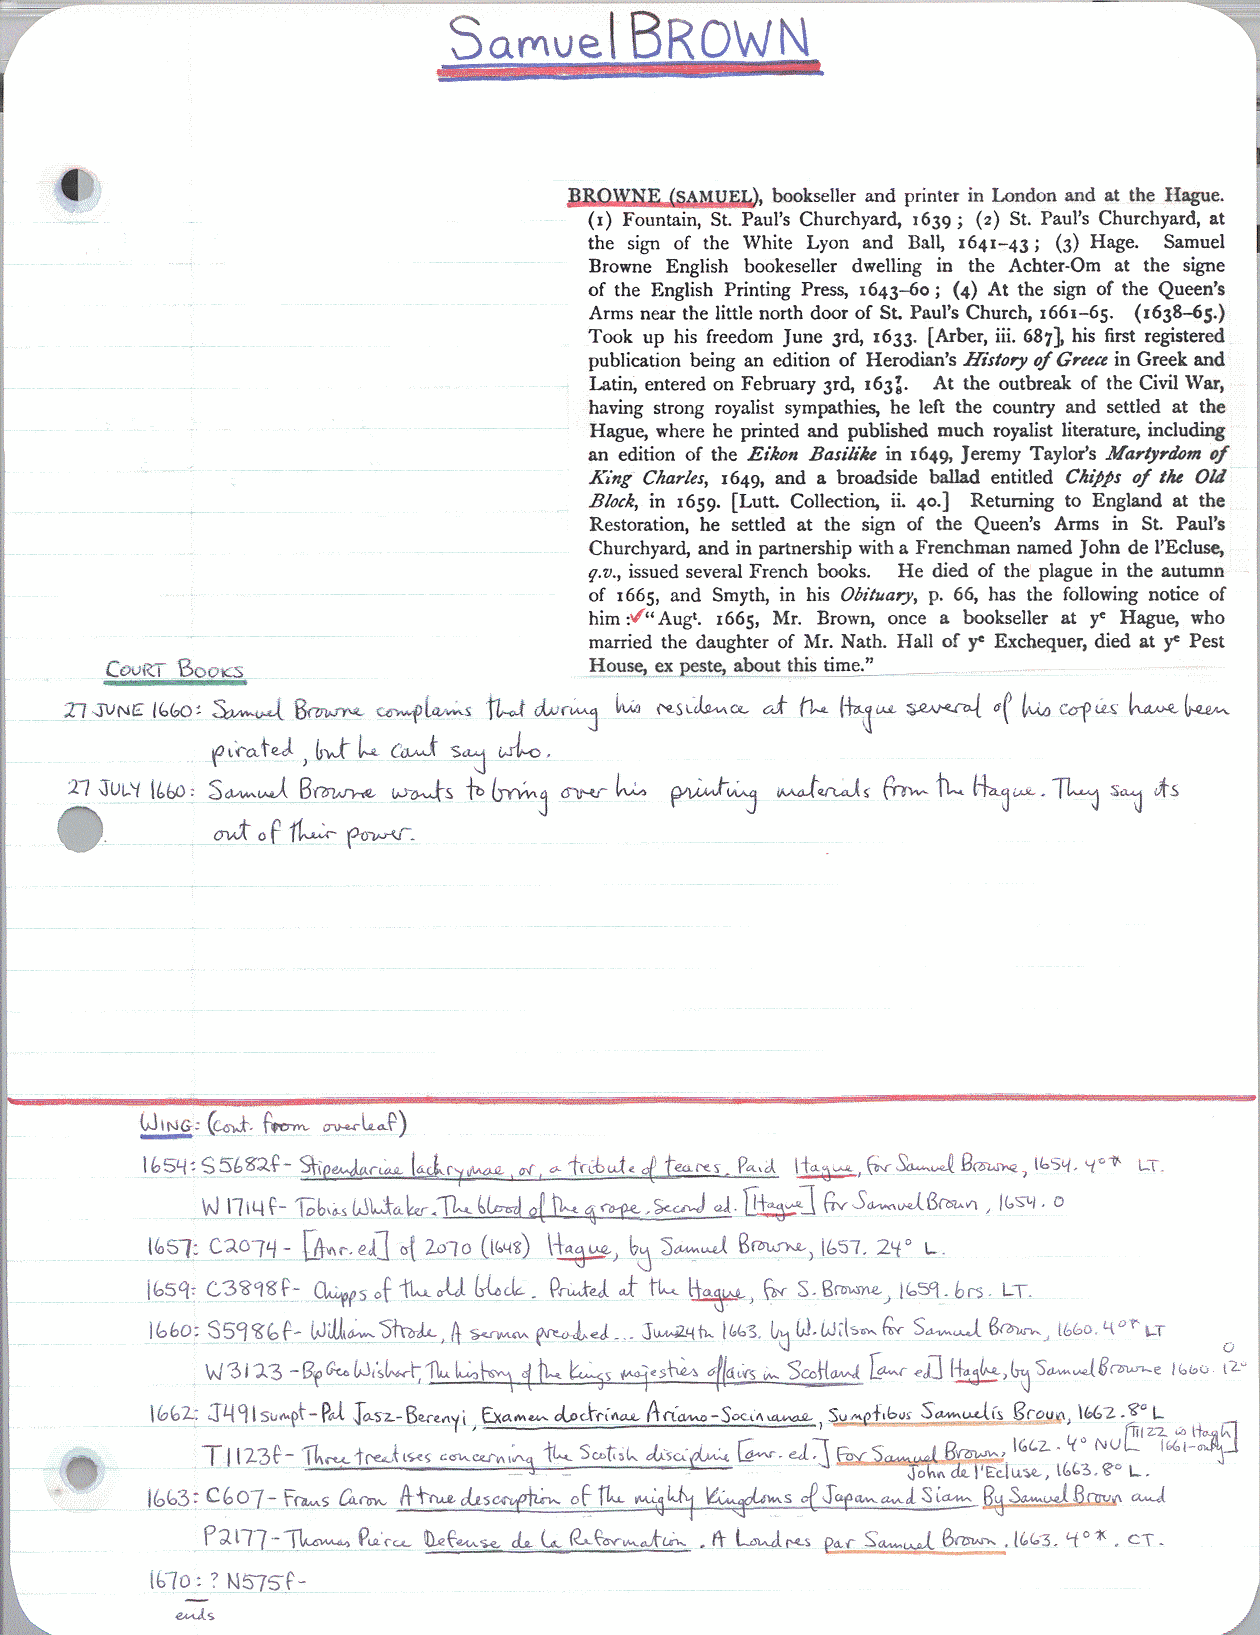 Samuel BROWN
BROWNE (SAMUEL), bookseller and printer in London and at the Hague.
(1) Fountain, St. Paul's Churchyard, 1639; (2) St. Paul's Churchyard, at
the sign of the White Lyon and Ball, 1641–43; (3) Hage. Samuel
Browne English bookeseller dwelling in the Achter-Om at the signe
of the English Printing Press, 1643–60; (4) At the sign of the Queen's
Arms near the little north door of St. Paul's Church, 1661–65. (1638–65.)
Took up his freedom June 3rd, 1633. [Arber, iii. 687], his first registered
publication being an edition of Herodian's History of Greece in Greek and
Latin, entered on February 3rd, 163⅞. At the outbreak of the Civil War,
having strong royalist sympathies, he left the country and settled at the
Hague, where he printed and published much royalist literature, including
an edition of the Eikon Basilike in 1649, Jeremy Taylor's Martyrdom of
King Charles, 1649, and a broadside ballad entitled Chipps of the Old
Block, in 1659. [Lutt. Collection, ii. 40.] Returning to England at the
Restoration, he settled at the sign of the Queen's Arms in St. Paul's
Churchyard, and in partnership with a Frenchman named John de l'Ecluse,
q.v., issued several French books. He died of the plague in the autumn
of 1665, and Smyth, in his Obituary, p. 66, has the following notice of
him :✓“Augt. 1665, Mr. Brown, once a bookseller at ye Hague, who
married the daughter of Mr. Nath. Hall of ye Exchequer, died at ye Pest
House, ex peste, about this time.”
COURT BOOKS
27 JUNE 1660: Samuel Browne complains that during his residence at the Hague several of his copies have been
pirated, but he cant say who.
27 JULY 1660: Samuel Browne wants to bring over his printing materials from the Hague. They say its
out of their power.
WING: (cont. from overleaf)
1654: S5682f- Stipendariae lachrymae, or, a tribute of teares. Paid Hague, for Samuel Browne, 1654. 4°* LT.
W1714f- Tobias Whitaker. The blood of the grape. Second ed. [Hague] for Samuel Brown, 1654. O
1657: C2074- [Anr. ed] of 2070 (1648) Hague, by Samuel Browne, 1657. 24° L.
1659: C3898f- Chipps of the old block. Printed at the Hague, for S. Browne, 1659. brs. LT.
1660: S5986f- William Strode, A sermon preached... Jun 24th 1663. by W. Wilson for Samuel Brown, 1660. 4°* LT
W3123 - Bp Geo Wishart, The history of the Kings majesties affairs in Scotland [anr ed] Haghe, by Samuel Browne 1660. 12° O
1662: J491 sumpt- Pal Jasz-Berenyi, Examen doctrinae Ariano-Socinianae, Sumptibus Samuelis Broun, 1662. 8° L
T1123f- Three treatises concerning the Scotish discipline [anr. ed.] For Samuel Brown, 1662. 4° NU [T1122 is Hagh 1661-only]
1663: C607- Frans Caron A true description of the mighty Kingdoms of Japan and Siam By Samuel Broun and John de l'Ecluse, 1663. 8° L.
P2177- Thomas Pierce Defense de la Reformation. A Londres par Samuel Brown. 1663. 4°*. CT.
1670: ? N575f-
ends